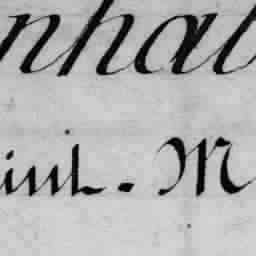 nhab
int - M